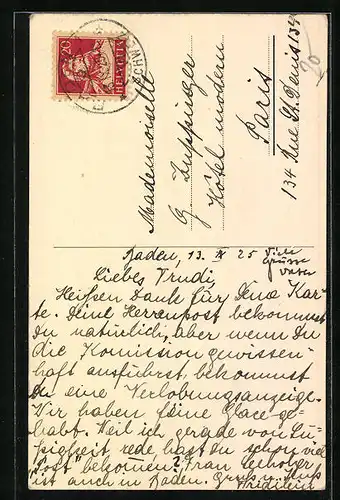 20
HELVETIA
SCHWEIZ
Mademoiselle
G. Zuppinger
Hôtel modern
Paris
134 Rue St. Denis 134
20
Baden, 13. IX 25
Viele
Grüsse
Vater
Liebes Trudi,
Heißen Dank für Deine Kar-
te. Deine Herrenpost bekommst
Du natürlich, aber wenn Du
die Komission gewissen-
haft ausführst, bekommst
Du eine Verlobungsanzeige.
Wir haben feine Glace ge-
habt. Weil ich gerade von
rede, hast du schon viel
Post bekommen? Frau
ist auch in Baden. Gruss u. Kuss